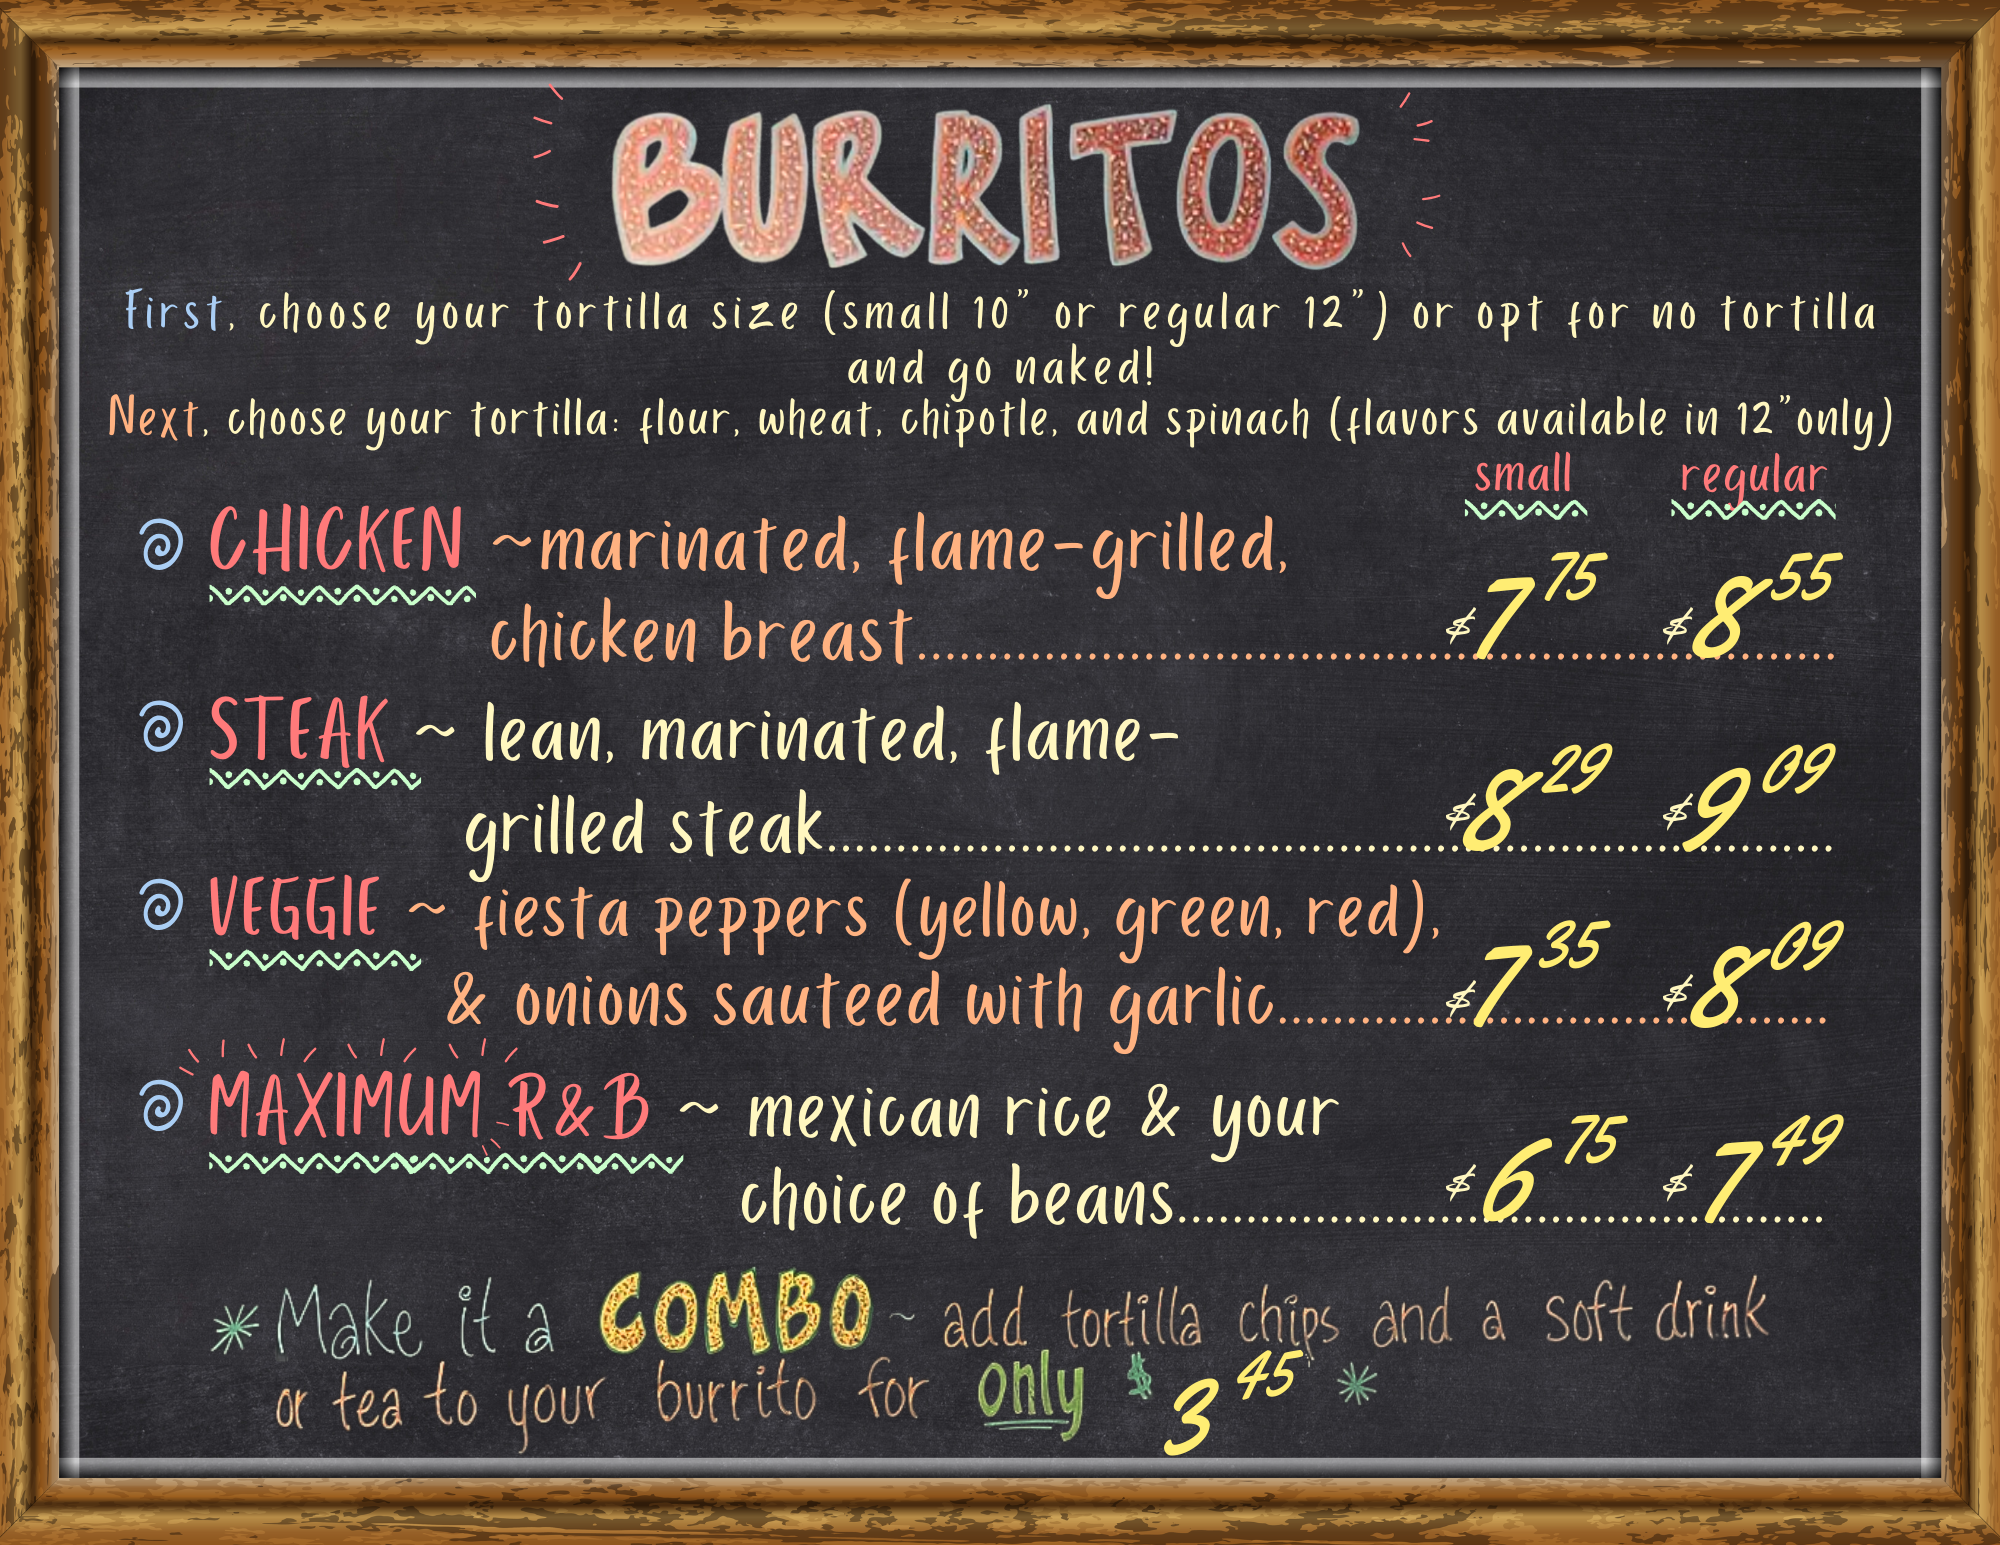 BURRITOS
First, choose your tortilla size (small 10" or regular 12") or opt for no tortilla
and go naked!
Next, choose your tortilla: flour, wheat, chipotle, and spinach (flavors available in 12"only)
small regular
CHICKEN ~marinated, flame-grilled,
chicken breast.......... $7 75 $8 55
STEAK ~ lean, marinated, flame-
grilled steak.......... $8 29 $9 09
VEGGIE ~ fiesta peppers (yellow, green, red),
& onions sauteed with garlic.......... $7 35 $8 09
MAXIMUM R&B ~ mexican rice & your
choice of beans.......... $6 75 $7 49
*Make it a COMBO ~ add tortilla chips and a soft drink
or tea to your burrito for only $3 45 *